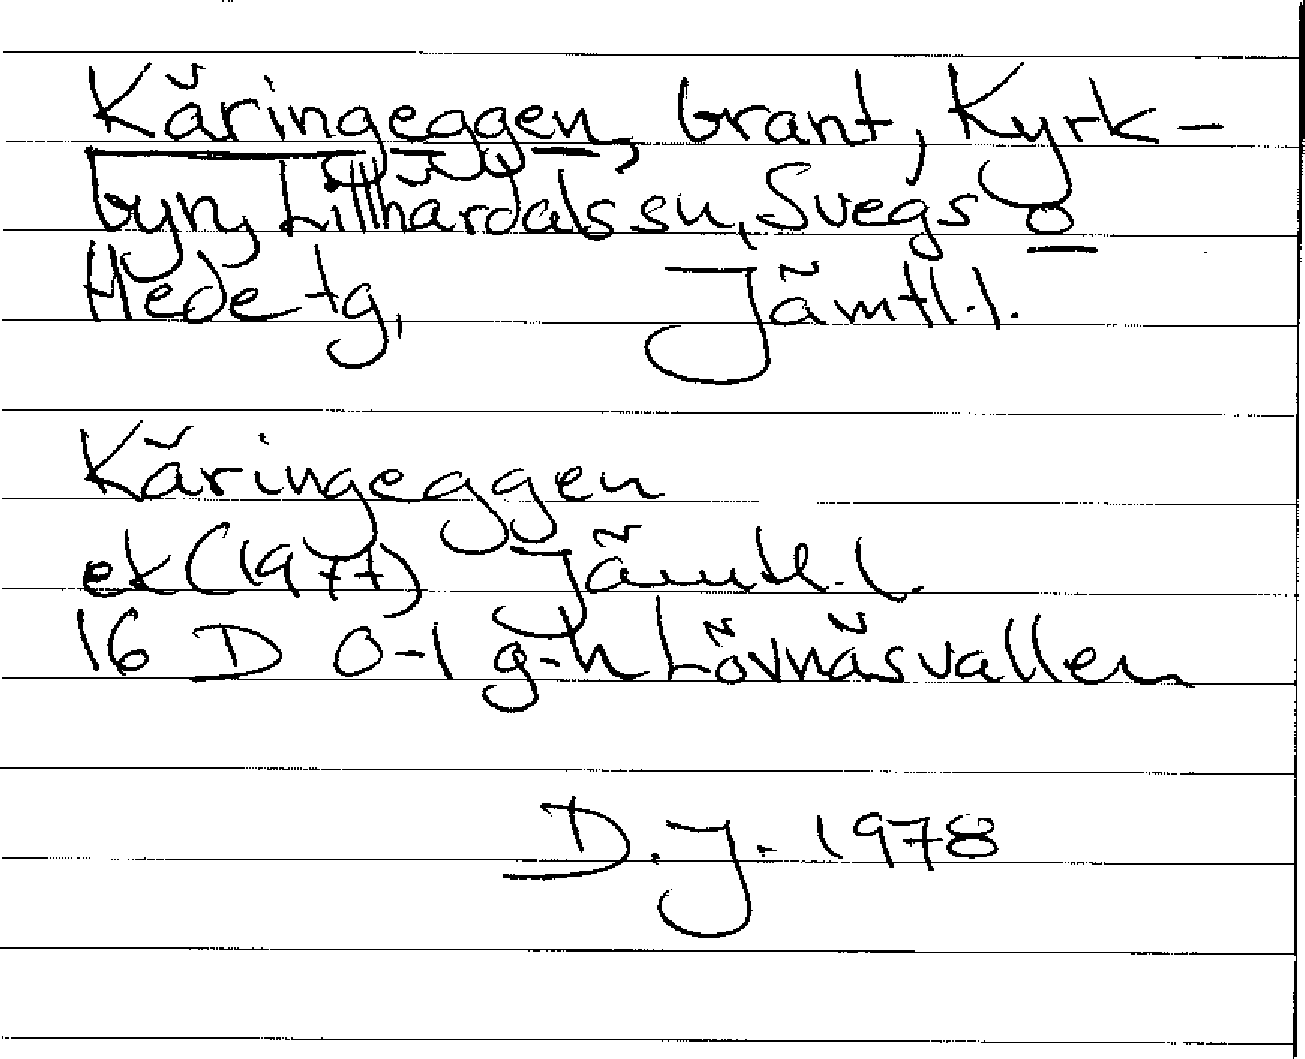 Käringeggen, brant, Kyrk-
byn, Lillhärdals sn, Svegs o
Hede tg, Jämtl.l.
Käringeggen
ek (1977) Jämtl.l.
16 D 0-1 g-h Lövnäsvallen
D.J. 1978